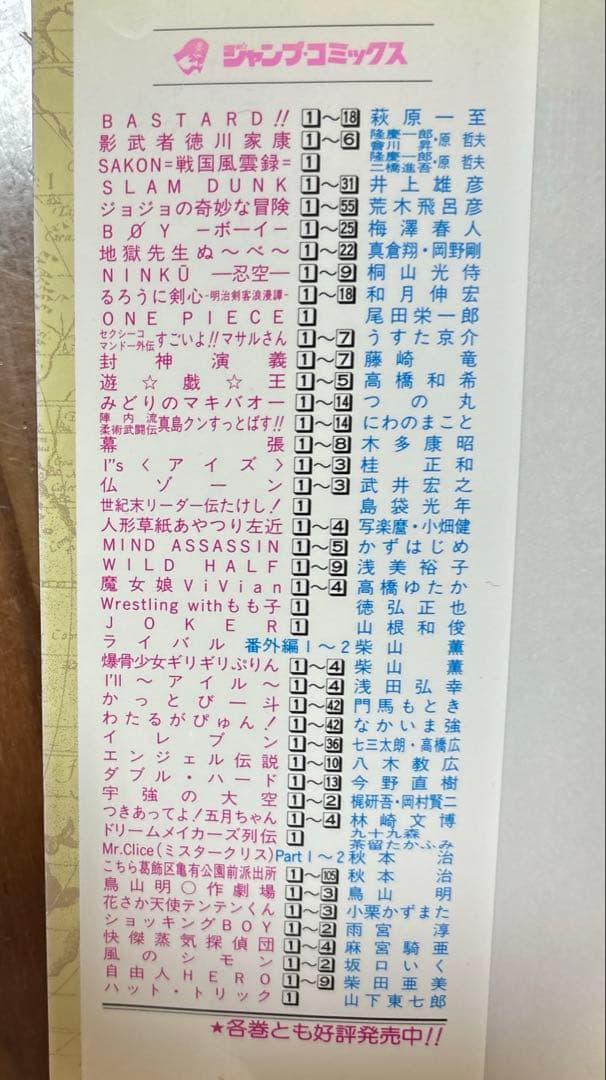 ジャンプ・コミックス
BASTARD!! 1〜18 萩原一至
影武者徳川家康 1〜6 隆慶一郎 會川昇・原 哲夫
SAKON=戦国風雲録= 1 隆慶一郎 二橋進吾・原 哲夫
SLAM DUNK 1〜31 井上雄彦
ジョジョの奇妙な冒険 1〜55 荒木飛呂彦
BØY ―ボーイ― 1〜25 梅澤春人
地獄先生ぬ〜べ〜 1〜22 真倉翔・岡野剛
NINKŪ ―忍空― 1〜9 桐山光侍
るろうに剣心-明治剣客浪漫譚- 1〜18 和月伸宏
ONE PIECE 1 尾田栄一郎
セクシーコマンドー外伝 すごいよ!!マサルさん 1〜7 うすた京介
封神演義 1〜7 藤崎竜
遊☆戯☆王 1〜5 高橋和希
みどりのマキバオー 1〜14 つの丸
陣内流柔術武闘伝 真島クンすっとばす!! 1〜14 にわのまこと
幕張 1〜8 木多康昭
I"s〈アイズ〉 1〜3 桂正和
仏ゾーン 1〜3 武井宏之
世紀末リーダー伝たけし! 1 島袋光年
人形草紙あやつり左近 1〜4 写楽麿・小畑健
MIND ASSASSIN 1〜5 かずはじめ
WILD HALF 1〜9 浅美裕子
魔女娘ViVian 1〜4 高橋ゆたか
Wrestling withもも子 1 徳弘正也
JOKER 1 山根和俊
ライバル 番外編1〜2 柴山薫
爆骨少女ギリギリぷりん 1〜4 柴山薫
I'll〜アイル〜 1〜4 浅田弘幸
かっとび一斗 1〜42 門馬もとき
わたるがぴゅん! 1〜42 なかいま強
イレブン 1〜36 七三太朗・高橋広
エンジェル伝説 1〜10 八木教広
ダブル・ハード 1〜13 今野直樹
宇強の大空 1〜2 梶研吾・岡村賢二
つきあってよ!五月ちゃん 1〜4 林崎文博
ドリームメイカーズ列伝 1 九十九森 茶留たかふみ
Mr.Clice(ミスタークリス) Part 1〜2 秋本治
こちら葛飾区亀有公園前派出所 1〜105 秋本治
鳥山明○作劇場 1〜3 鳥山明
花さか天使テンテンくん 1〜3 小栗かずまた
ショッキングBOY 1〜2 雨宮淳
快傑蒸気探偵団 1〜4 麻宮騎亜
風のシモン 1〜2 坂口いく
自由人HERO 1〜9 柴田亜美
ハット・トリック 1 山下東七郎
★各巻とも好評発売中!!